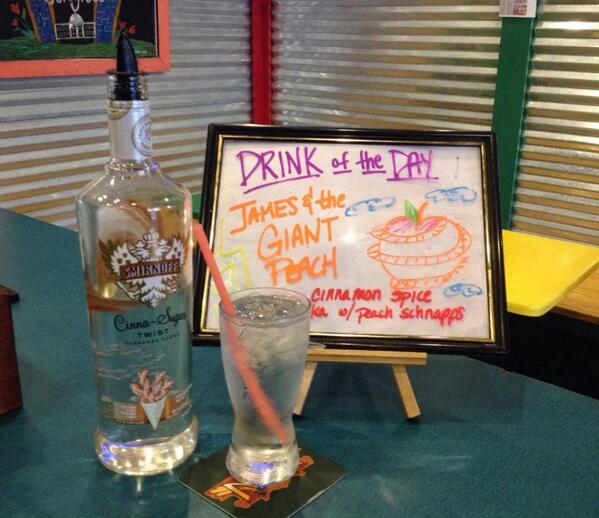 DRINK of the DAY
JAMES & the
GIANT
PEACH
cinnamon spice
ka w/ Peach schnapps
SMIRNOFF
Cinna-Sugar
TWIST
FLAVORED VODKA